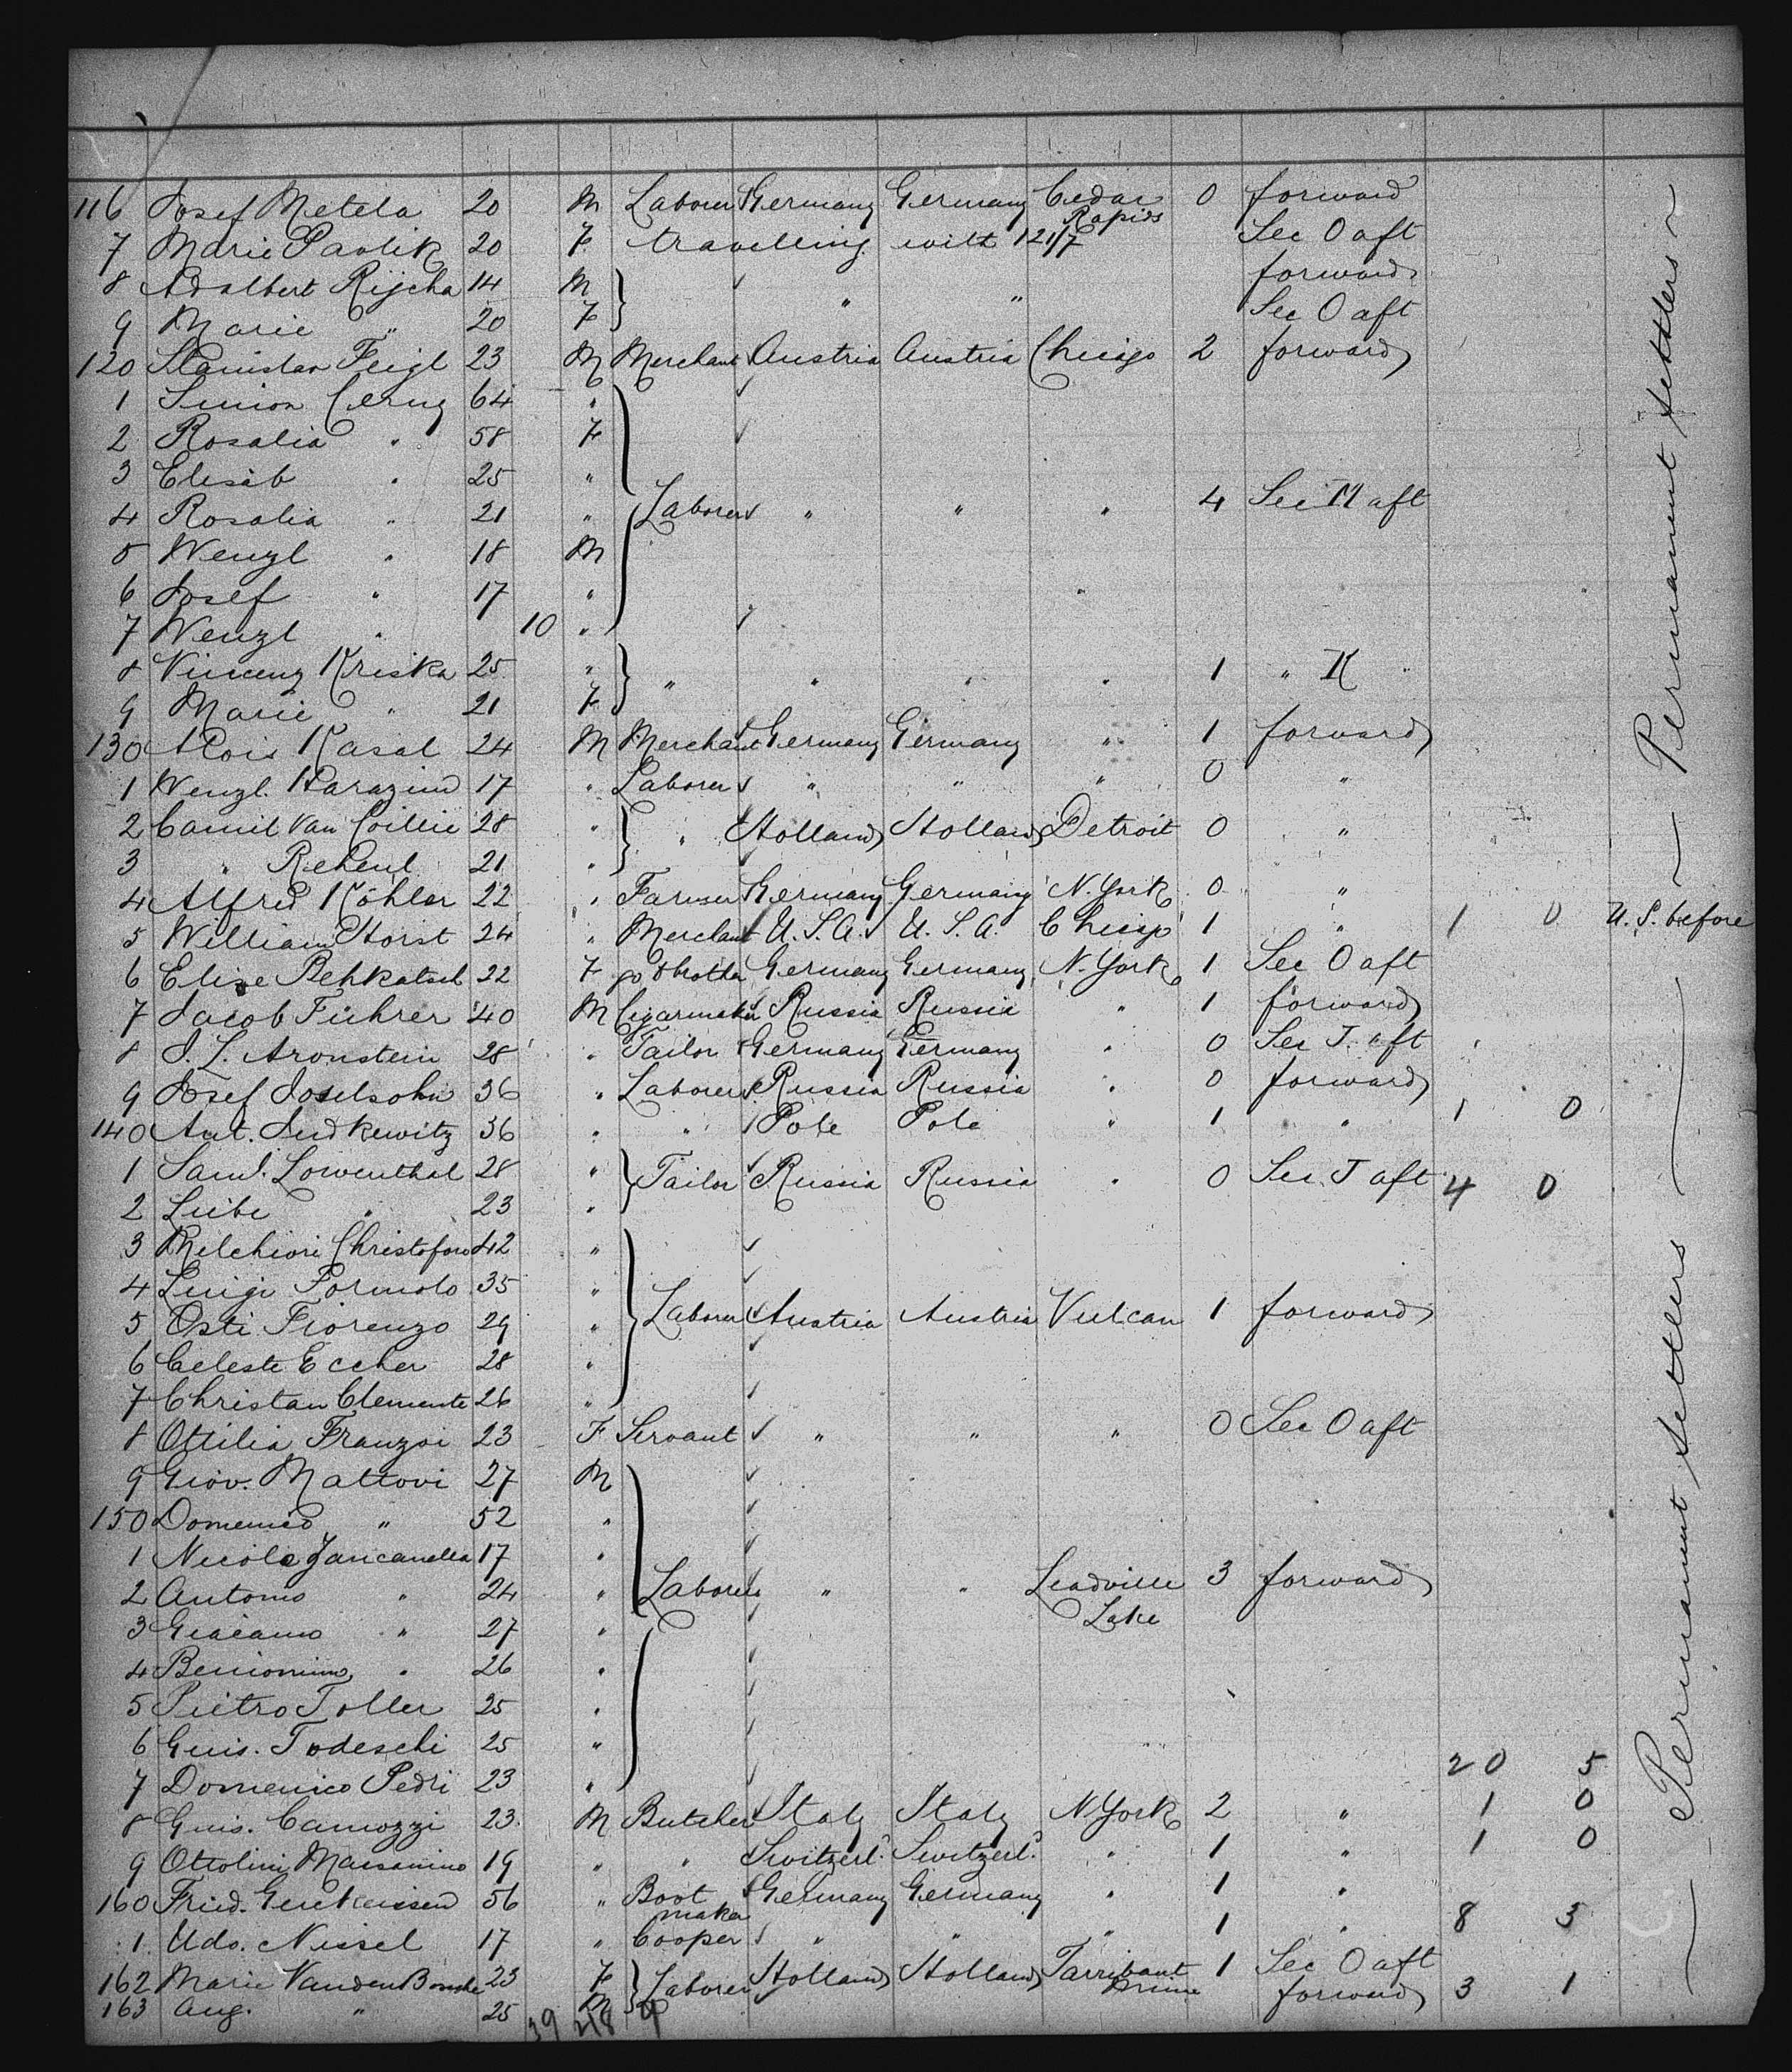 116 Josef Metela 20 M Laborer Germany Germany Cedar Rapids 0 forward
7 Marie Pavlik 20 F travelling with 121/7 Sec O aft
8 Adalbert Rijcha 14 M forward
9 Marie " 20 F " " Sec O aft
120 Stanislav Feigl 23 M Merchant Austria Austria Chicago 2 forward
1 Simion Cerny 64 "
2 Rosalia " 58 F
3 Elisab " 25 "
4 Rosalia " 21 " Laborer " " " 4 Sec M aft
5 Wenzl " 18 M
6 Josef " 17 "
7 Wenzl " 10 "
8 Vincenz Kriska 25 " " " " " 1 " K "
9 Marie " 21 F
130 Alois Kasal 24 M Merchant Germany Germany " 1 forward
1 Wenzl. Harazim 17 " Laborer " " " 0 "
2 Camil Van Coillie 28 " " Holland Holland Detroit 0 "
3 " 21 "
4 Alfred Köhler 22 " Farmer Germany Germany N. York 0 "
5 William Horst 24 " Merchant U.S.A. U.S.A. Chicago 1 " 1 0 U.S. before
6 Elise 22 F go t brother Germany Germany N. York 1 Sec O aft
7 Jacob Führer 40 M Cigarmaker Russia Russia " 1 forward
8 J. L. Aronstein 28 " Tailor Germany Germany " 0 Sec J. aft
9 Josef Joselsohn 36 " Laborer Russia Russia " 0 forward
140 Ant. Judkewitz 36 " " Pole Pole " 1 " 1 0
1 Saml. Lowenthal 28 " Tailor Russia Russia " 0 Sec. J aft 4 0
2 Leibe " 23 "
3 Melchiori Christoforo 42 "
4 Luigi Pormolo 35 "
5 Osti Fiorenzo 29 " Laborer Austria Austria Vulcan 1 forward
6 Celeste Eccher 28 "
7 Christan Clemente 26 "
8 Ottilia Franzoi 23 F Servant " " " 0 Sec O aft
9 Giov. Mattovi 27 M
150 Domenico " 52 "
1 Nicolo Zancanella 17 "
2 Antonio " 24 " Laborer " " Leadville Lake 3 forward
3 Giacamo " 27 "
4 " 26 "
5 Pietro Toller 25 "
6 Guis. Todeschi 25 "
7 Domenico Pedri 23 " 20 5
8 Guis. Camozzi 23 M Butcher Italy Italy N York 2 " 1 0
9 Ottolini 19 " " Switzerl. Switzerl. " 1 " 1 0
160 Fried. 56 " Boot maker Germany Germany " 1 "
1 Udo. Nissel 17 " Cooper " " " 1 " 8 3
162 Marie Vanden 23 F Laborer Holland Holland 1 Sec O aft
163 Aug. " 25 M forward 3 1
39 48 9
— Permanent settlers — Permanent settlers ~